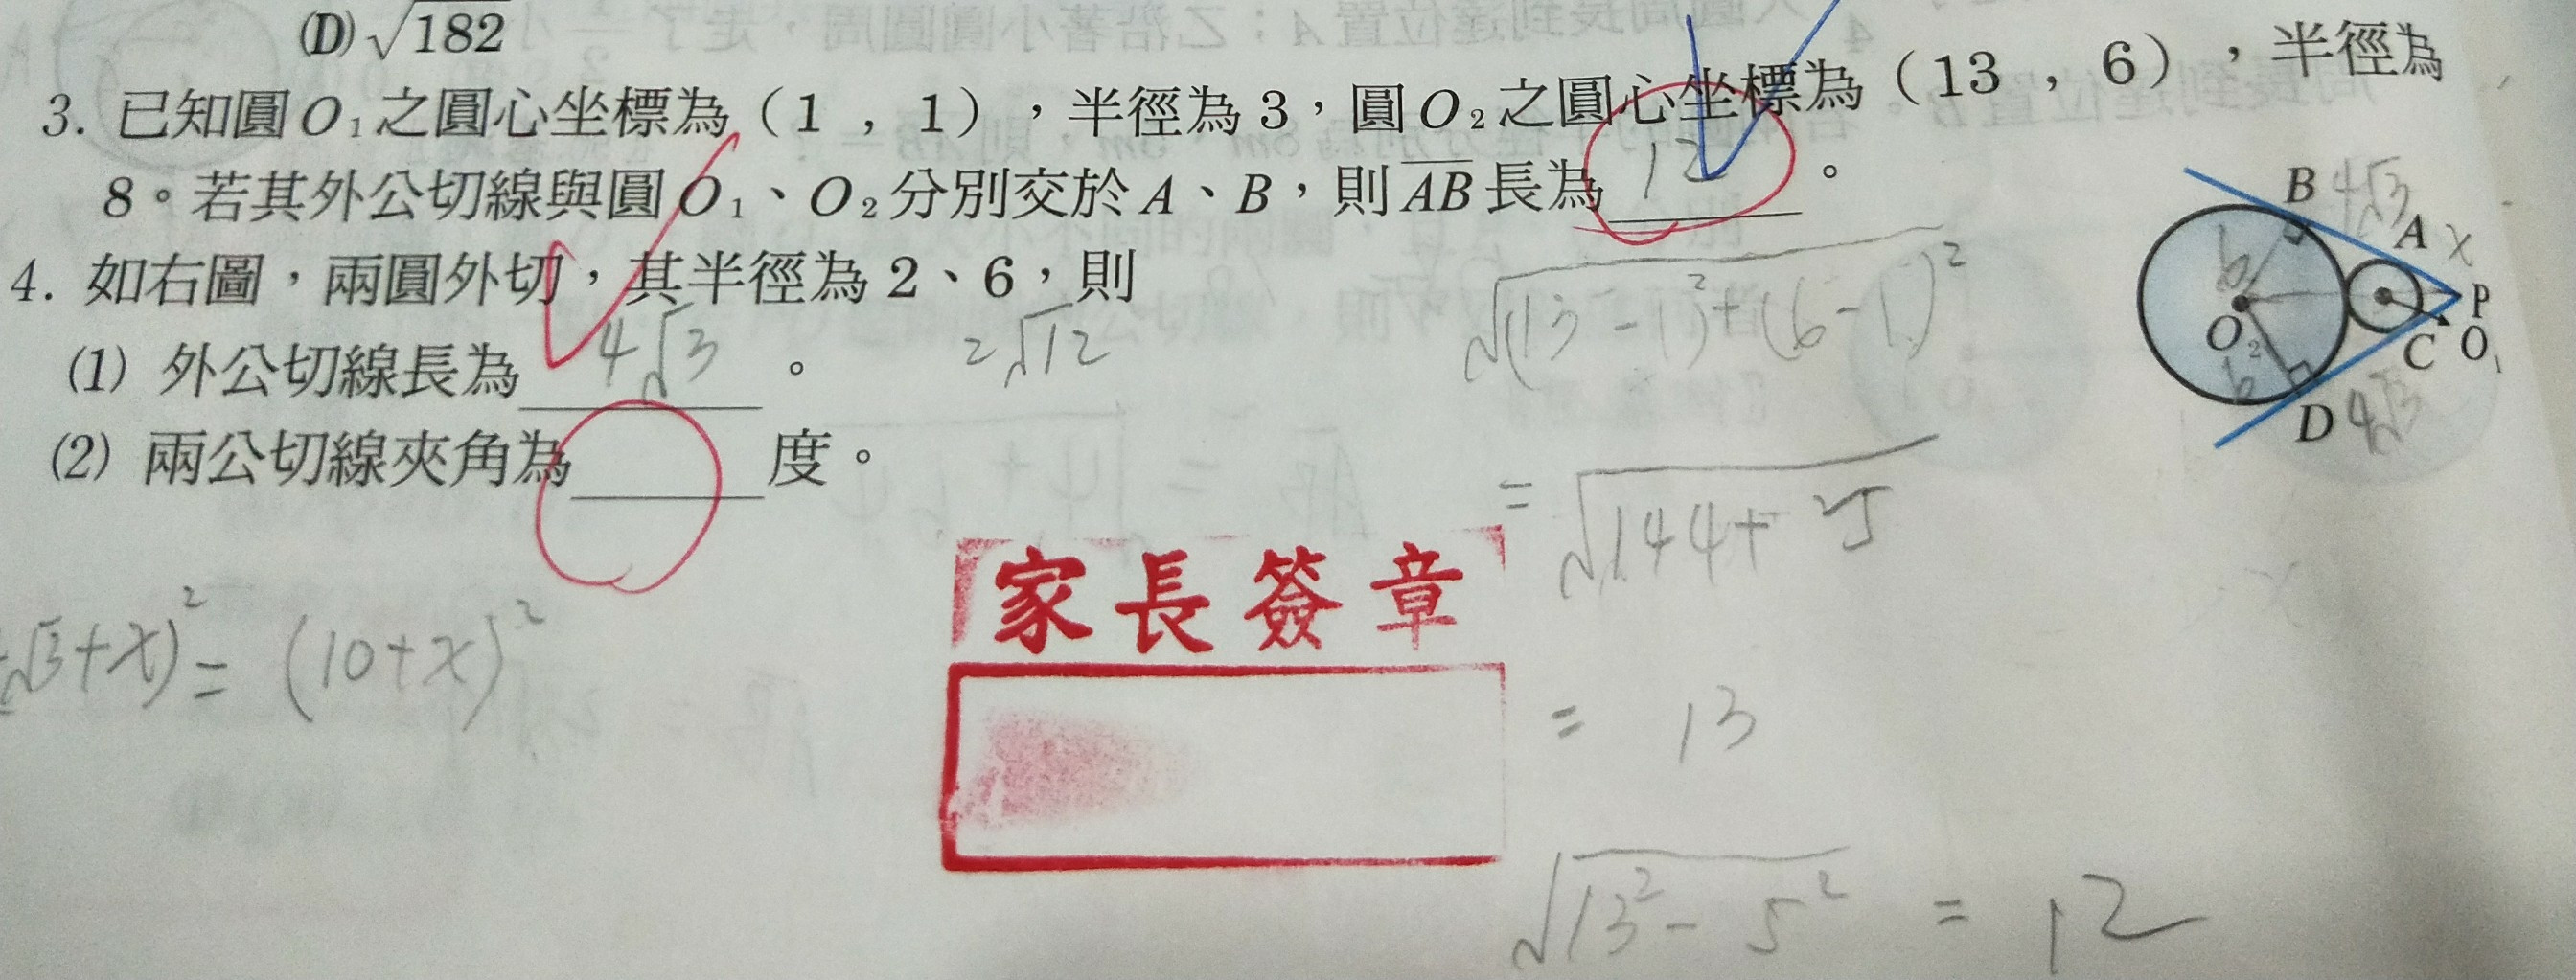 (D) √182
3. 已知圓O₁之圓心坐標為（1 , 1），半徑為3，圓O₂之圓心坐標為（13 , 6），半徑為
8。若其外公切線與圓O₁、O₂分別交於A、B，則AB長為 12 。
4. 如右圖，兩圓外切，其半徑為2、6，則
(1) 外公切線長為 4√3 。 2√12
(2) 兩公切線夾角為 度。
B 4√3
A x
6
P
O₂
C O₁
6
D 4√3
√(13-1)²+(6-1)²
= √144+25
= 13
√13²-5² = 12
√3+x)² = (10+x)²
家長簽章